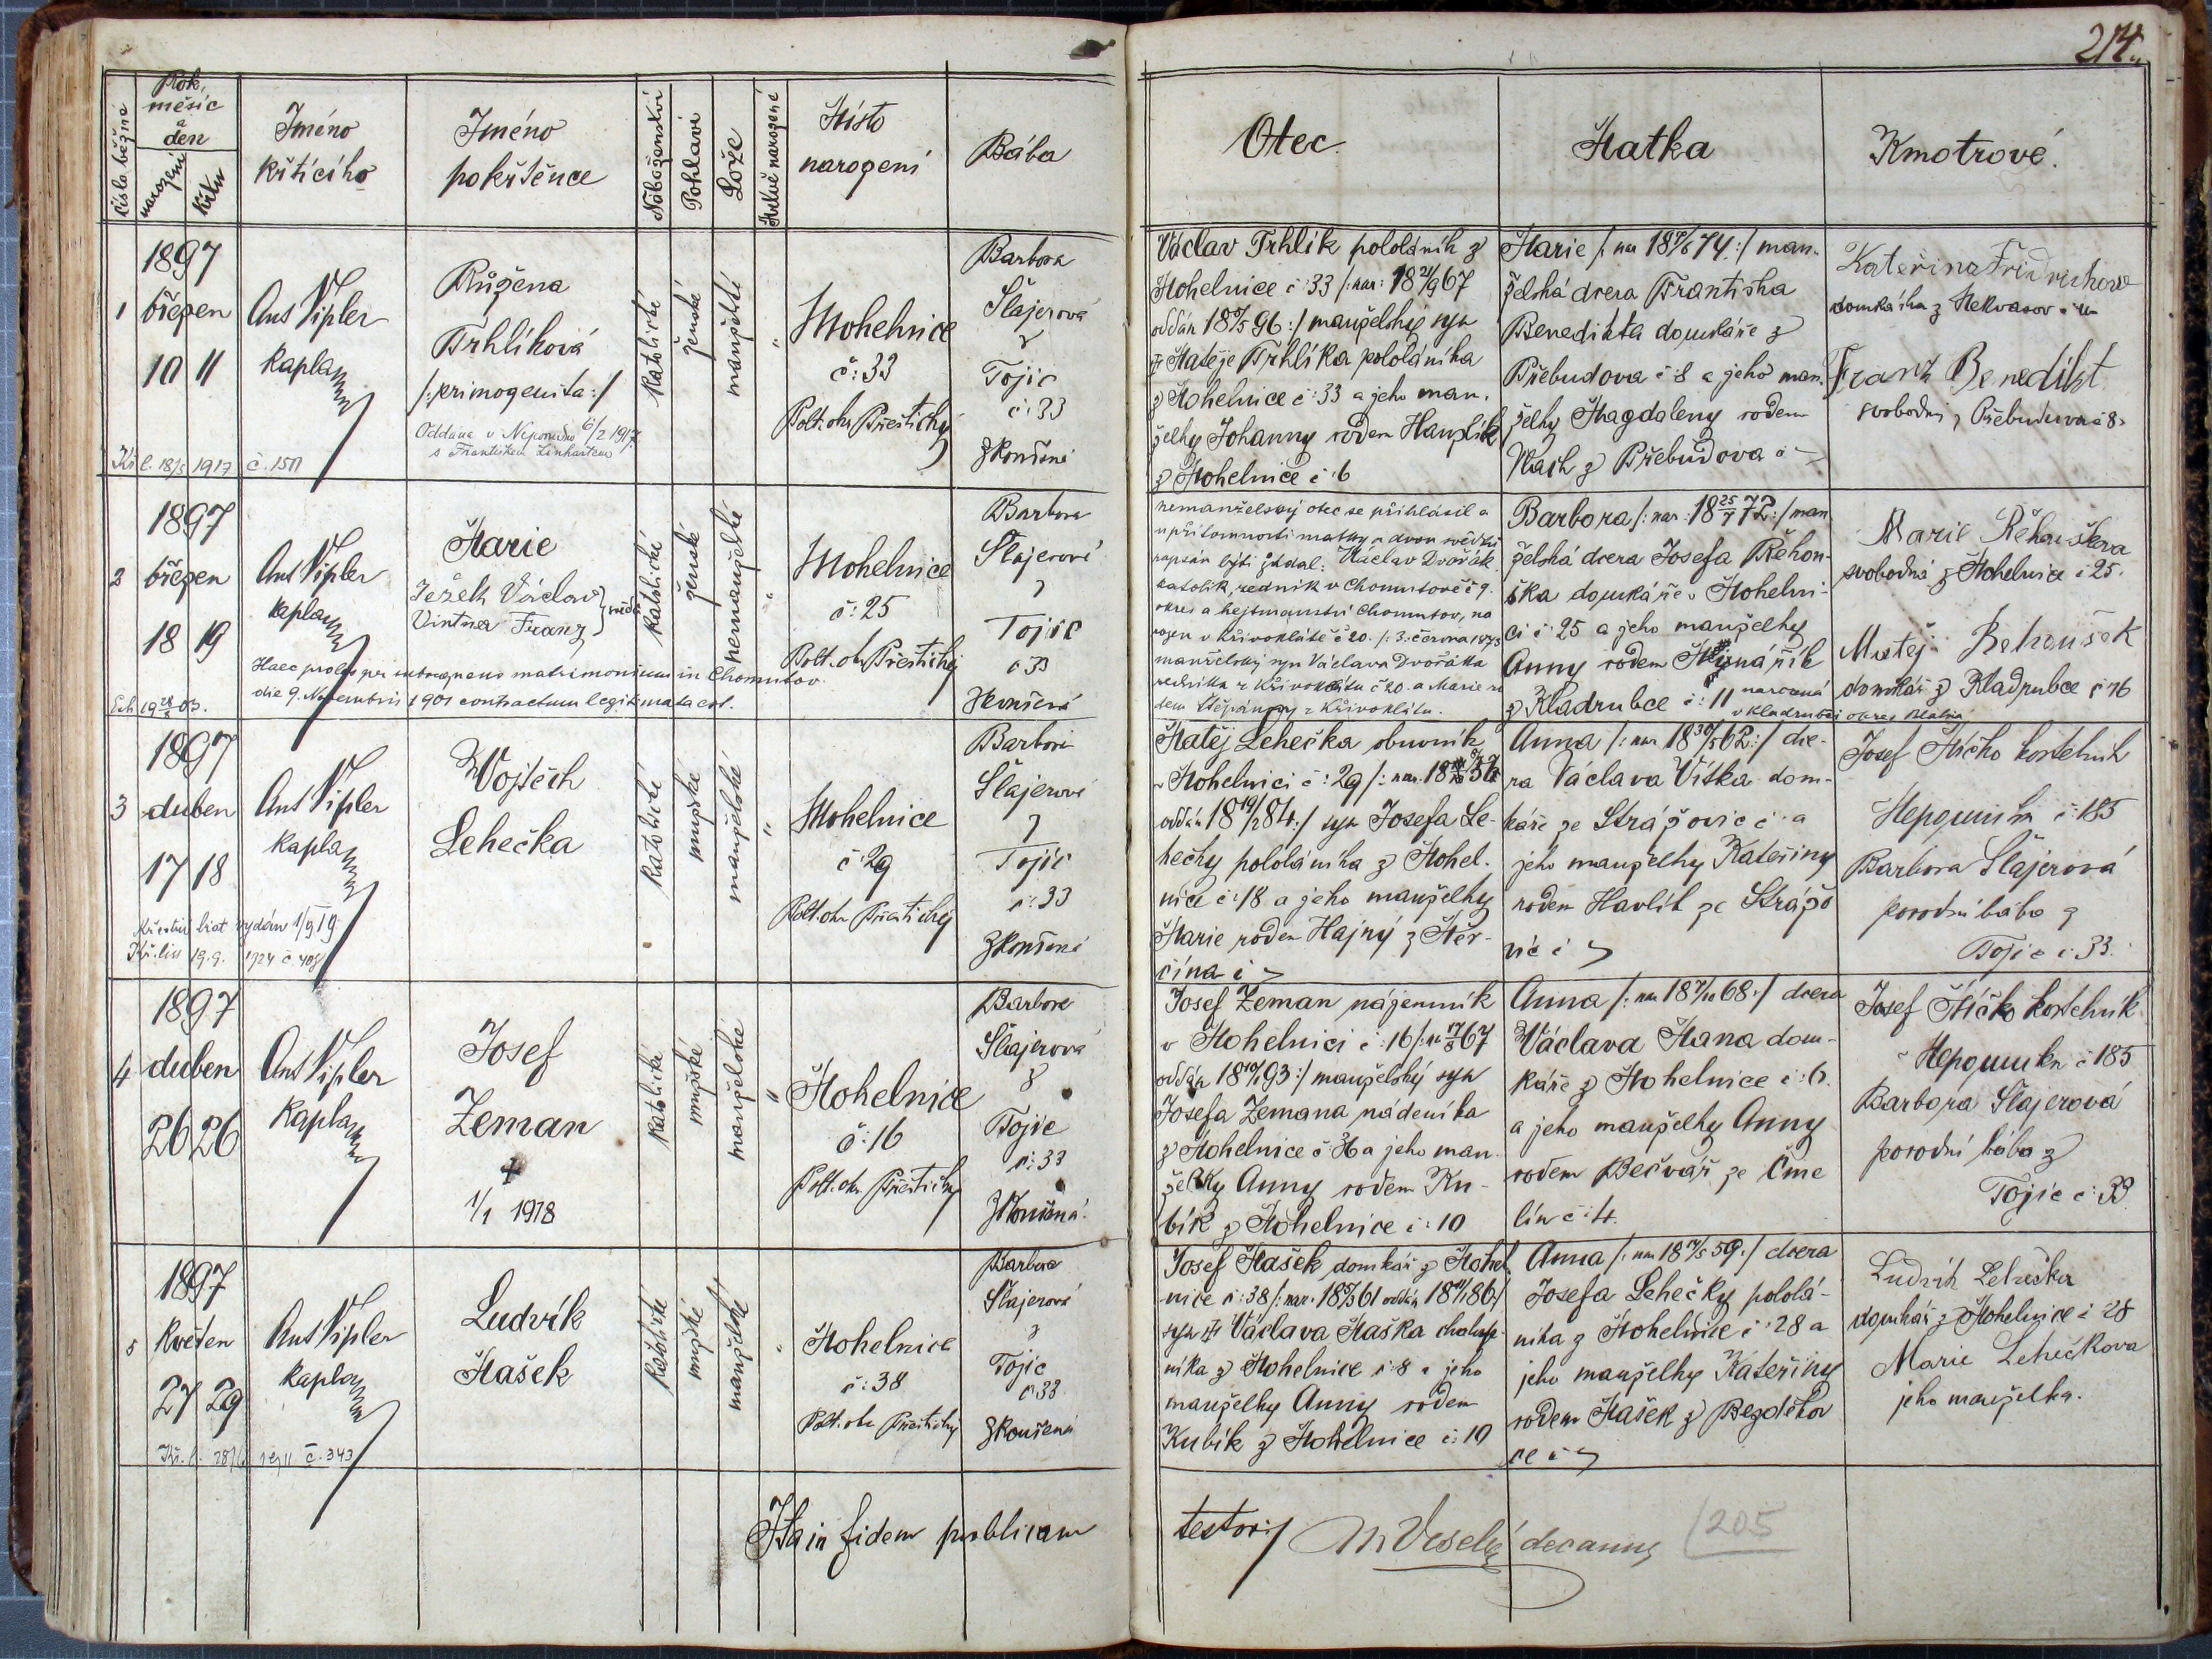 214.
číslo běžné
Rok,
měsíc
a
den
narození
křtu
Jméno
křtícího
Jméno
pokřtěnce
Náboženství
Pohlaví
Lože
Mrtvě narozené
Místo
narození
Bába
Otec
Matka
Kmotrové.
1
1897
březen
10 11
Ant Vipler
kaplan
Růžena
Trhlíková
/:primogenita:/
Oddána v Nepomuku 6/2 1917
s Františkem Linhartem
Kř. l. 18/5 1917 č. 150
katolické
ženské
manželské
"
Mohelnice
č: 33
Polt. okr Přeštický
Barbora
Šlajerová
z
Tojic
č: 33
zkoušená
Václav Trhlík pololáník z
Mohelnice č: 33 /: nar: 18 21/9 67
oddán 18 5 96 :/ manželský syn
Matěje Trhlíka pololáníka
z Mohelnice č: 33 a jeho man-
želky Johanny rodem Hanzlík
z Mohelnice č: 6
Marie /: nar 18 74 :/ man-
želská dcera Františka
Benedikta domkáře z
Přebudova č: 8 a jeho man-
želky Magdaleny rodem
z Přebudova č
Kateřina Fridrichova
domkářka z Nekvasov č
Franz Benedikt
svobodný z Přebudova č 8.
2
1897
březen
18 19
Ant Vipler
kaplan
Marie
Ježek Václav
Vintner Franz } svědci
Haec proles per subsequens matrimonium in Chomutov
die 9. Novembris 1901 contractum legitimata est.
katolické
ženské
nemanželské
"
Mohelnice
č: 25
Polt. okr Přeštický
Barbora
Šlajerová
z
Tojic
č 33
zkoušená
nemanželský otec se přihlásil a
u přítomnosti matky a dvou svědků
zapsán býti žádal: Václav Dvořák
katolík, redník v Chomutově č 9.
okres a hejtmanství Chomutov, na-
rozen v Křivoklátě č 20. /: 3. června 1873
manželský syn Václava Dvořáka
redníka z Křivoklátu č 20. a Marie ro-
dem Štěpánovy z Křivoklátu.
Barbora /: nar: 18 25/7 72 :/ man-
želská dcera Josefa Řehou-
ška domkáře v Mohelni-
ci č: 25 a jeho manželky
Anny rodem Mlynářík
z Kladrubce č: 11 narozená
v Kladrubci okres Blatná
Marie Řehouškova
svobodná z Mohelnice č 25.
Matěj Řehoušek
domkář z Kladrubce č 16
3
1897
duben
17 18
Ant Vipler
kaplan
Vojtěch
Lehečka
Křestní list vydán 1/9 19
Kř. list 19. 9. 1924 č 408
katolické
mužské
manželské
"
Mohelnice
č 29
Polt. okr Přeštický
Barbora
Šlajerová
z
Tojic
č: 33
zkoušená
Matěj Lehečka obuvník
v Mohelnici č: 29 /: nar. 18 56
oddán 18 19/2 84 :/ syn Josefa Le-
hečky pololáníka z Mohel-
nice č: 18 a jeho manželky
Marie rodem Hajný z Měr-
čína č
Anna /: nar 18 30/5 62 :/ dce-
ra Václava Víška dom-
káře ze Strážovic č: a
jeho manželky Kateřiny
rodem Havlík ze Strážo
vic č
Josef Míčko kostelník
Nepomuku č: 185
Barbora Šlajerová
porodní bába z
Tojic č: 33.
4
1897
duben
26 26
Ant Vipler
kaplan
Josef
Zeman
+
1/1 1978
katolické
mužské
manželské
"
Mohelnice
č: 16
Polt. okr. Přeštický
Barbora
Šlajerová
z
Tojic
č: 33
zkoušená
Josef Zeman nájemník
v Mohelnici č: 16 /: n 67
oddán 18 93 :/ manželský syn
Josefa Zemana nádeníka
z Mohelnice č 36 a jeho man-
želky Anny rodem Ku-
bík z Mohelnice č: 10
Anna /: nar 18 68 :/ dcera
Václava Hana dom-
káře z Mohelnice č: 6.
a jeho manželky Anny
rodem Bečvář ze Čme
lín č: 4.
Josef Míčko kostelník
Nepomuku č 185
Barbora Šlajerová
porodní bába z
Tojic č: 33
5
1897
květen
27 29
Ant Vipler
kaplan
Ludvík
Mašek
č. 343
katolické
mužské
manželské
"
Mohelnice
č: 38
Polt. okr Přeštický
Barbora
Šlajerová
z
Tojic
č 33
zkoušená
Josef Mašek domkář z Mohel-
nice č: 38 /: nar. 18 61 oddán 18 86 :/
syn Václava Maška chalup-
níka z Mohelnice č: 8 a jeho
manželky Anny rodem
Kubík z Mohelnice č: 10
Anna /: nar 18 59 :/ dcera
Josefa Lehečky pololá-
níka z Mohelnice č: 28 a
jeho manželky Kateřiny
rodem Mašek z Bezděkov
ce č
Ludvík Lehečka
domkář z Mohelnice č 28
Marie Lehečkova
jeho manželka.
Ita in fidem publicam
testor:
M Veselý decanus
205